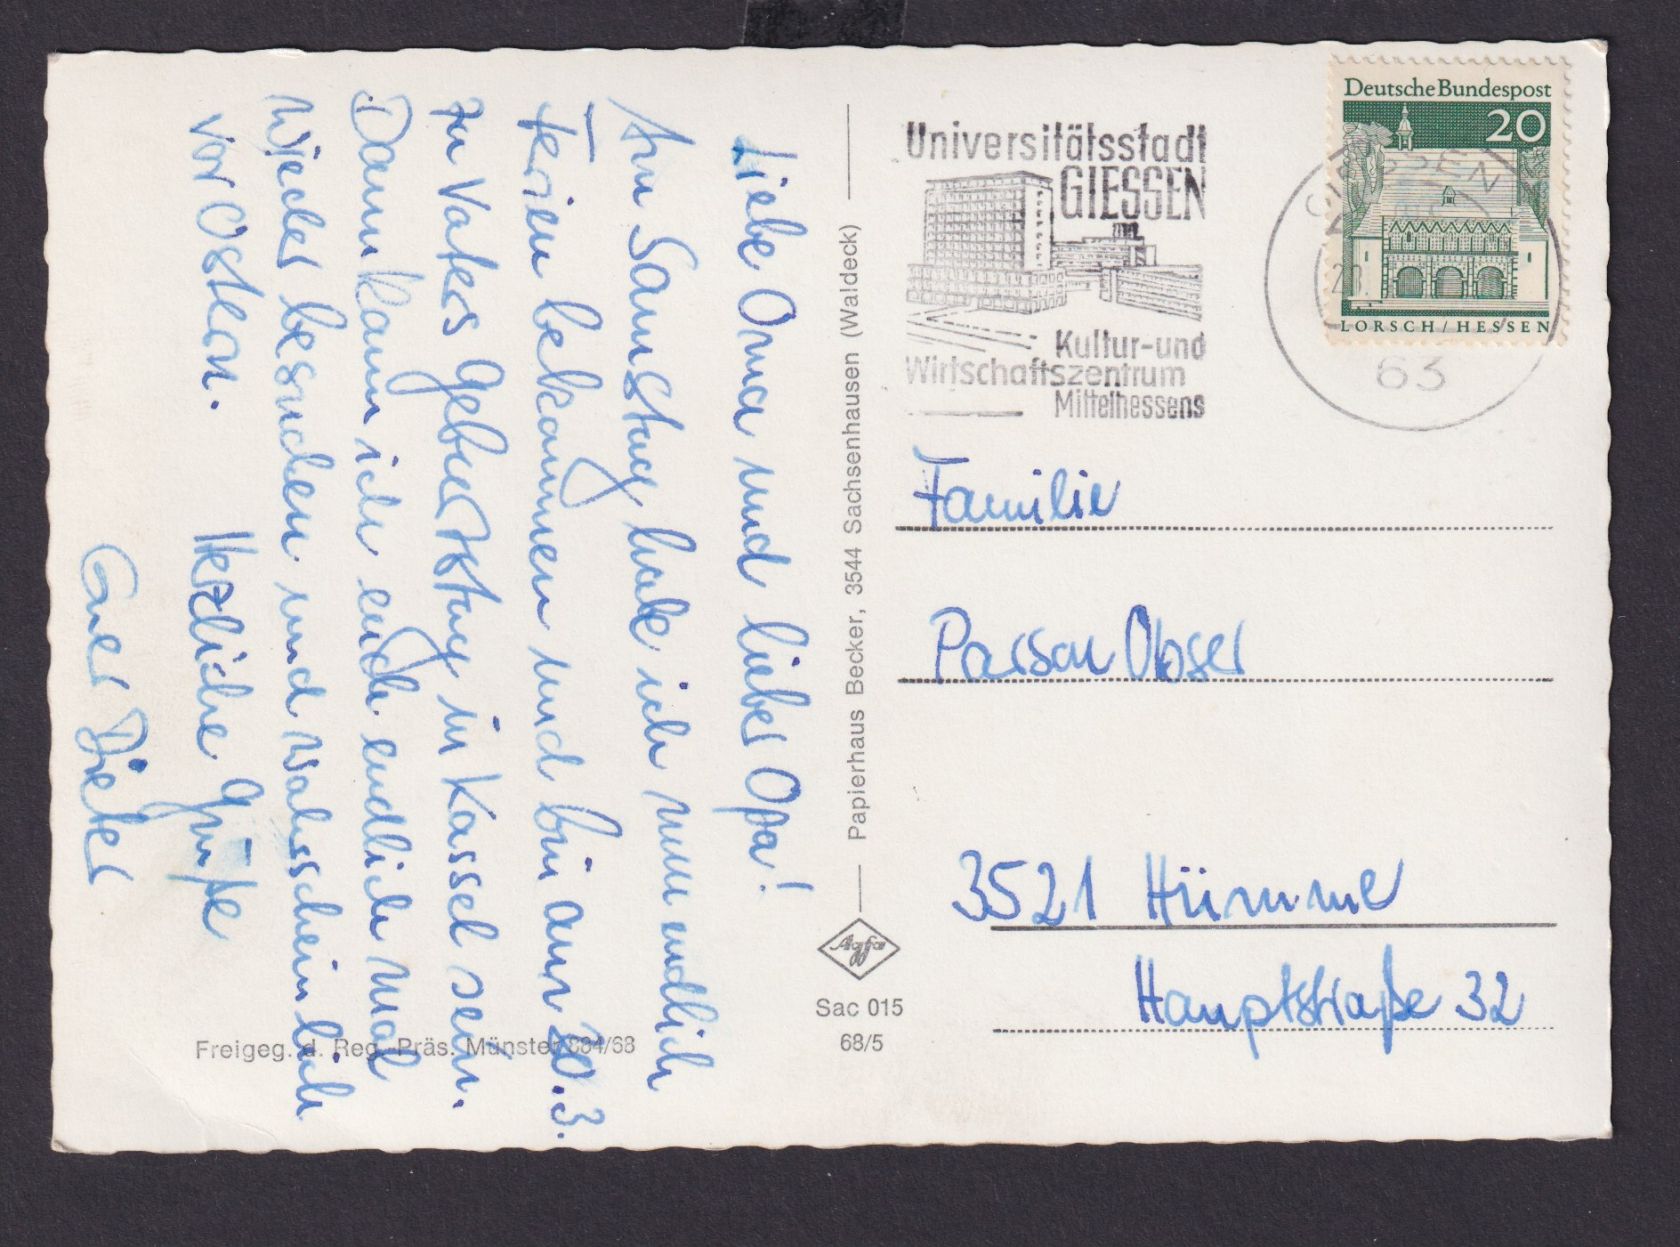 Liebe Oma und lieber Opa!
Am Samstag habe ich nun endlich
Ferien bekommen und bin am 30.3.
zu Vaters Geburtstag in Kassel sein.
Dann kann ich euch endlich mal
wieder besuchen und wahrscheinlich
vor Ostern.
Herzliche Grüße
Euer Dieter
Freigeg. d. Reg.-Präs. Münster 884/68
Papierhaus Becker, 3544 Sachsenhausen (Waldeck)
Agfa
Sac 015
68/5
Universitätsstadt
GIESSEN
Kultur-und
Wirtschaftszentrum
Mittelhessens
Deutsche Bundespost
20
LORSCH/HESSEN
GIESSEN
63
Familie
3521 Hümme
Hauptstraße 32